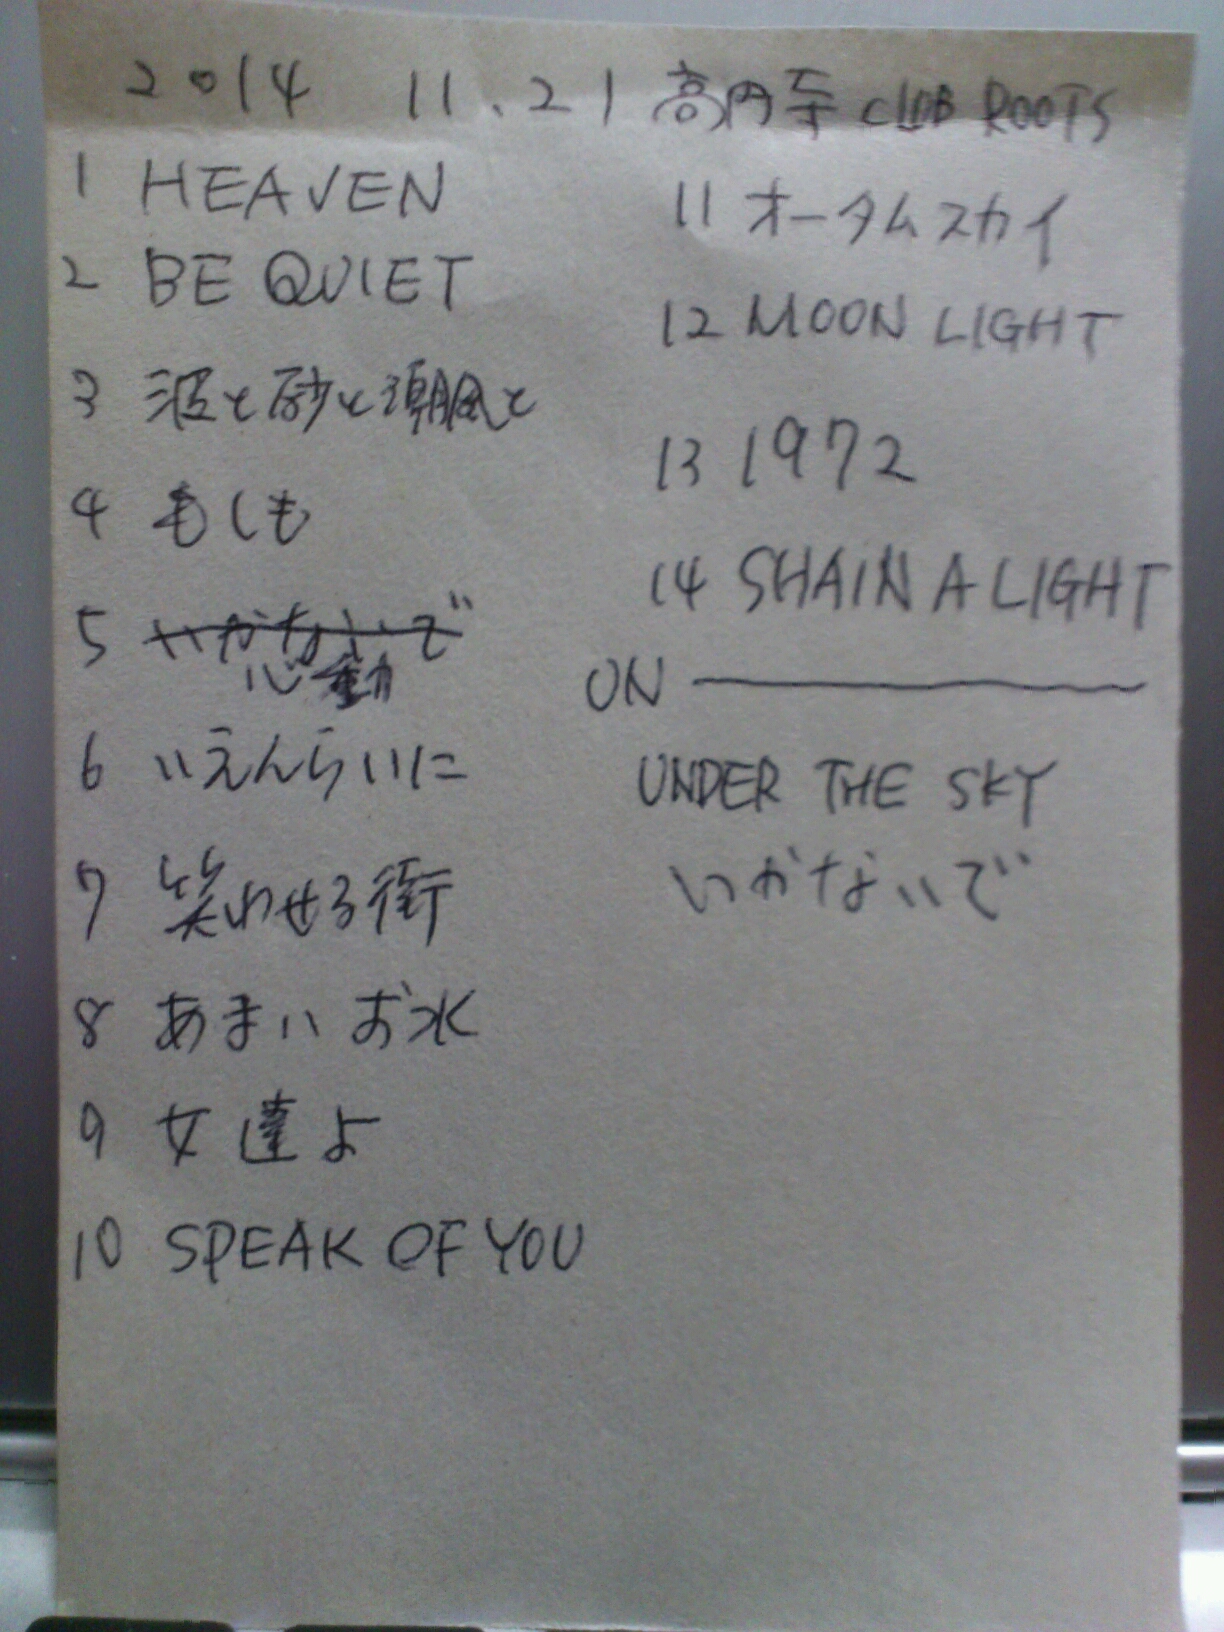 2014 11.21 高円寺 CLUB ROOTS
1 HEAVEN
2 BE QUIET
3 波と砂と潮風と
4 もしも
5 いかないで
心動
6 いえんらいに
7 笑わせる街
8 あまいお水
9 女達よ
10 SPEAK OF YOU
11 オータムスカイ
12 MOON LIGHT
13 1972
14 SHAIN A LIGHT
ON
UNDER THE SKY
いかないで